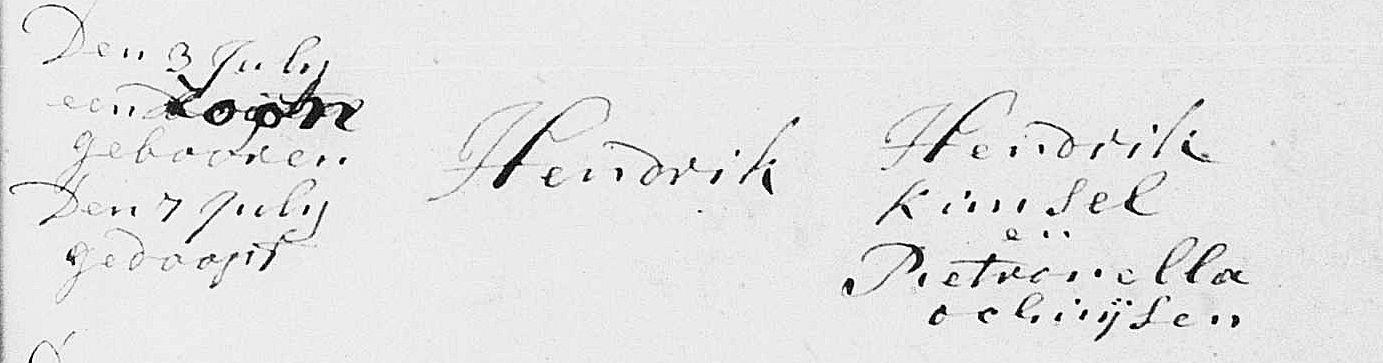 Den 3 July
een zoon
gebooren
Den 7 July
gedoopt
Hendrik
Hendrik
Kimsel
en
Pietronella
ochuijsen